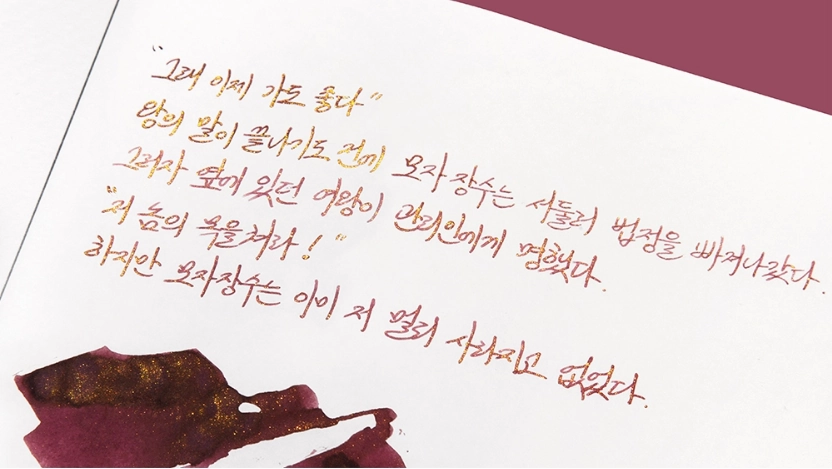 "그래 이제 가도 좋다"
왕의 말이 끝나기도 전에 모자 장수는 서둘러 법정을 빠져나갔다.
그러자 옆에 있던 여왕이 관리인에게 명했다.
"저 놈의 목을쳐라!"
하지만 모자장수는 이미 저 멀리 사라지고 없었다.